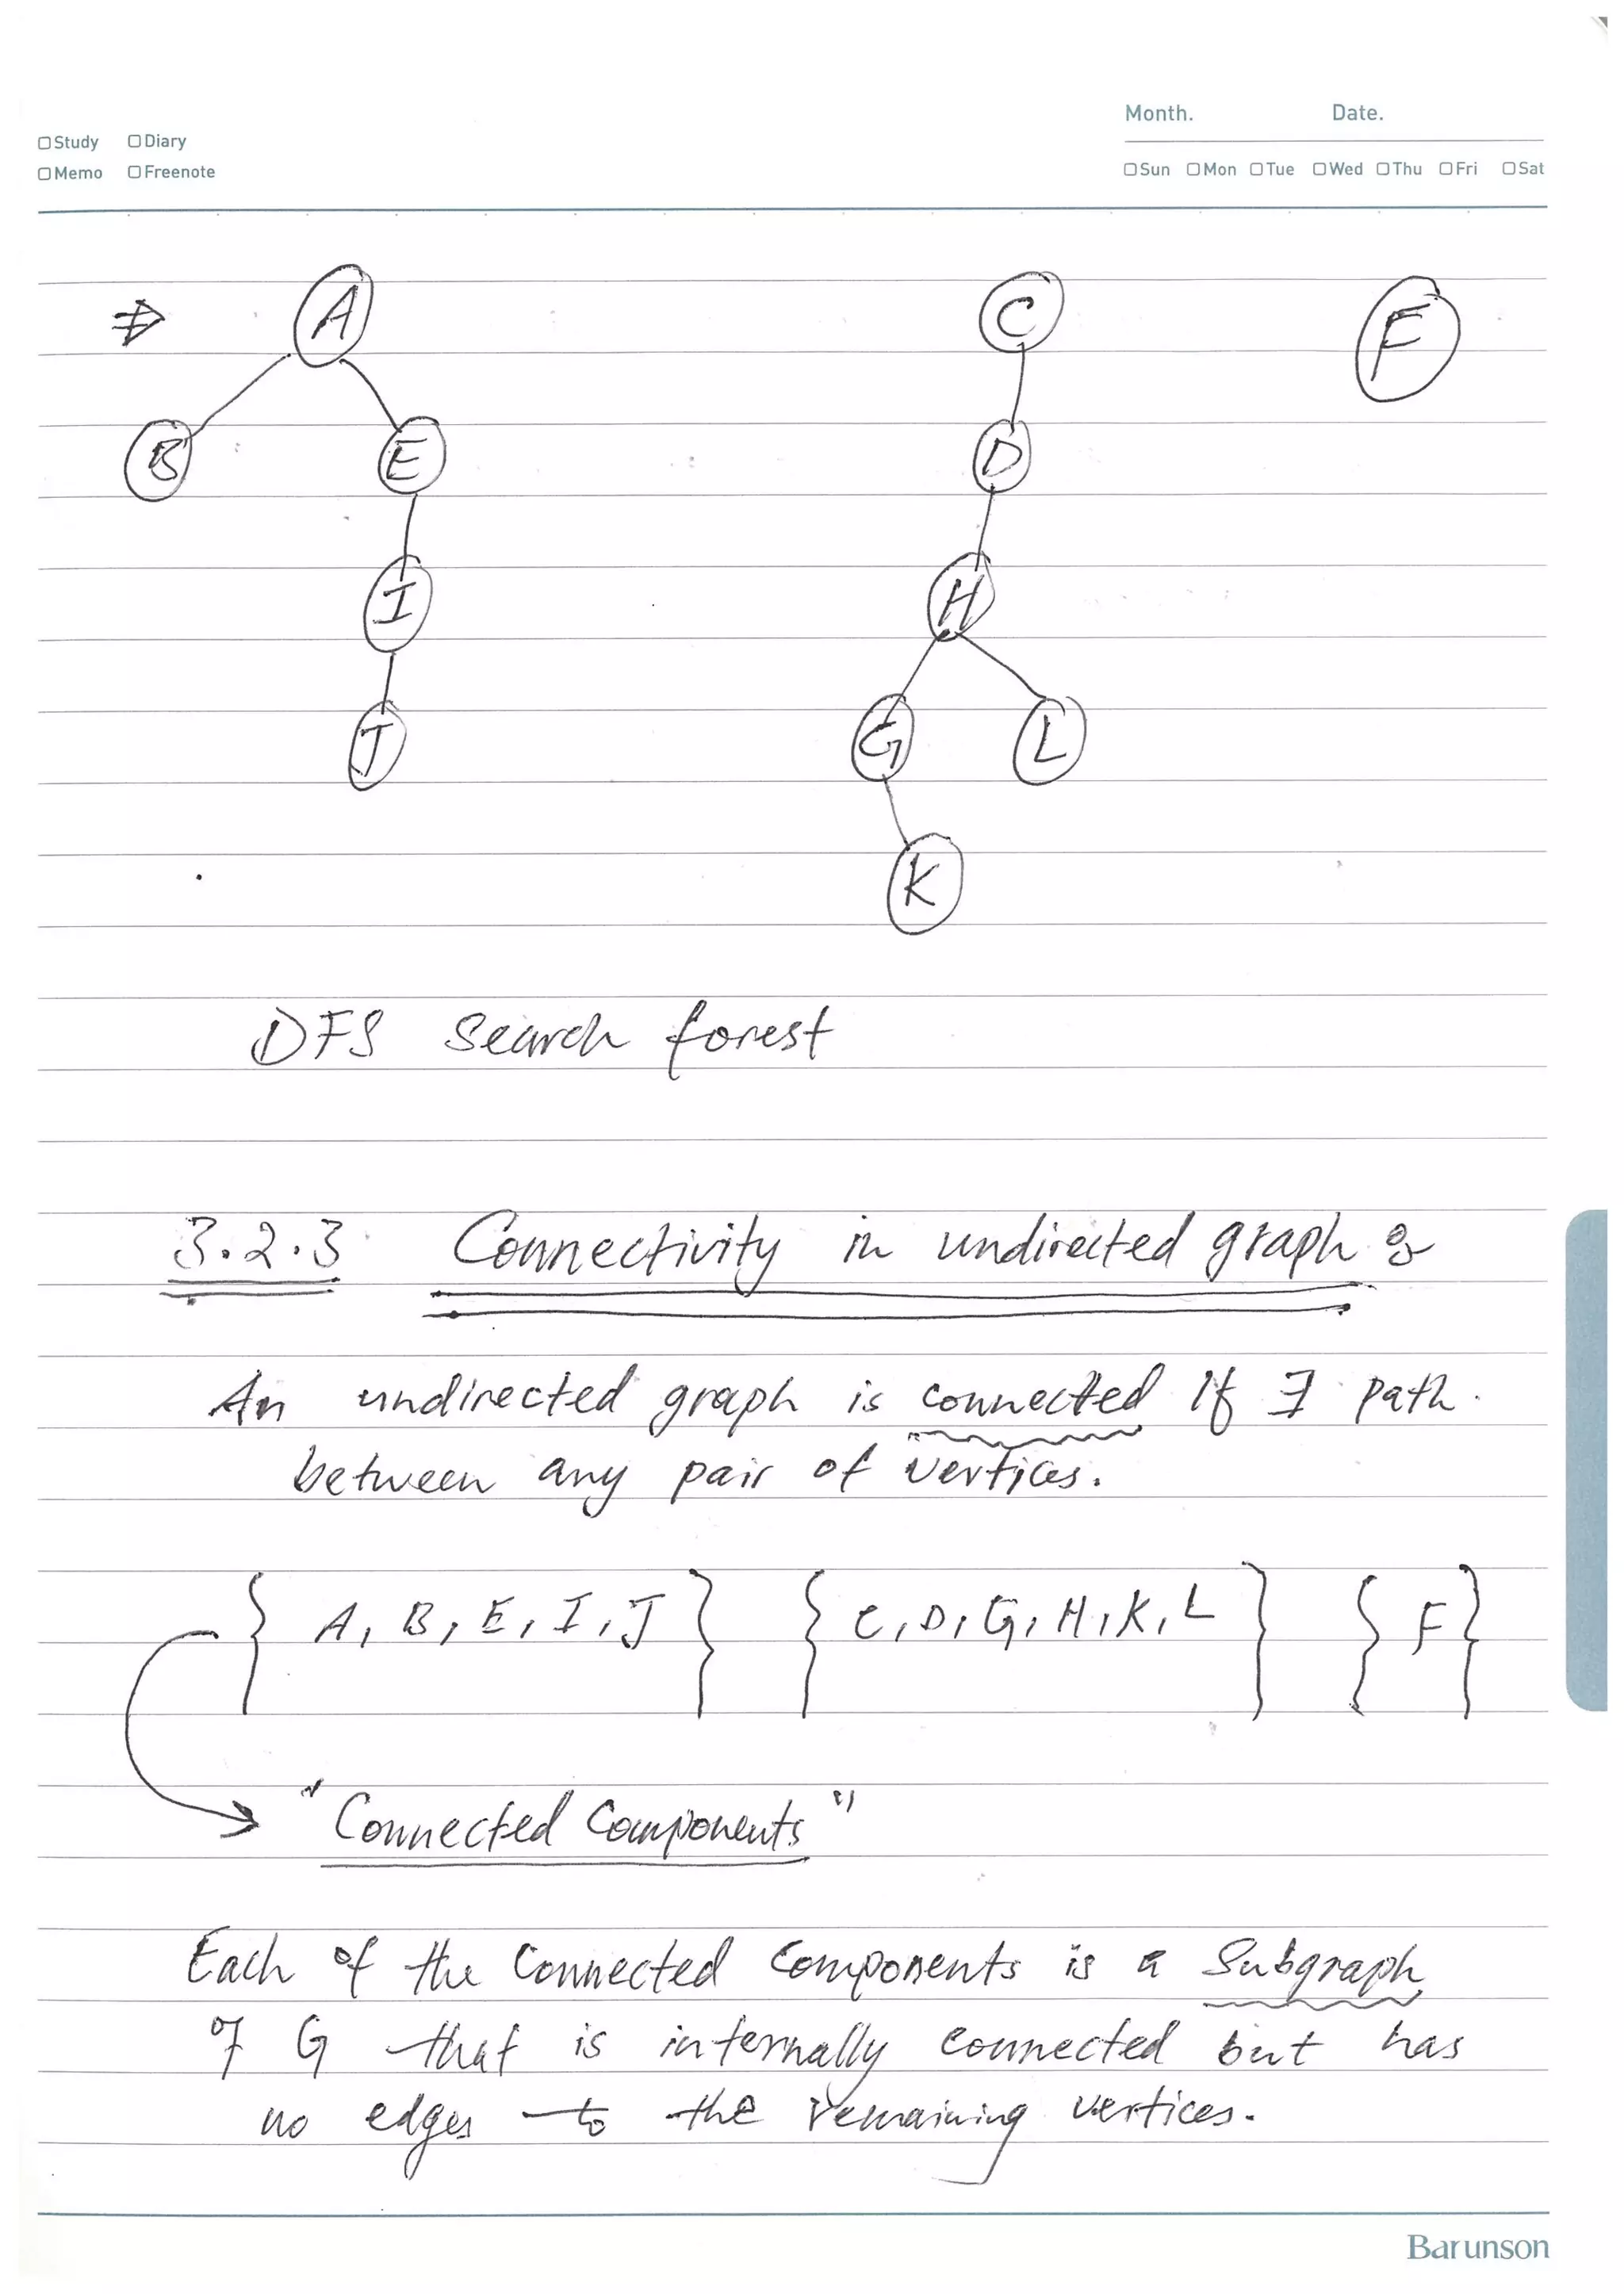 Month. Date.
Study Diary
Memo Freenote
Sun Mon Tue Wed Thu Fri Sat
⇒ A C F
B E D
I H
J G L
K
DFS Search forest
3.2.3 Connectivity in undirected graph :
An undirected graph is connected if ∃ path
between any pair of vertices.
{ A, B, E, I, J } { C, D, G, H, K, L } { F }
→ "Connected Components"
Each of the Connected Components is a Subgraph
of G that is internally connected but has
no edges to the remaining vertices.
Barunson